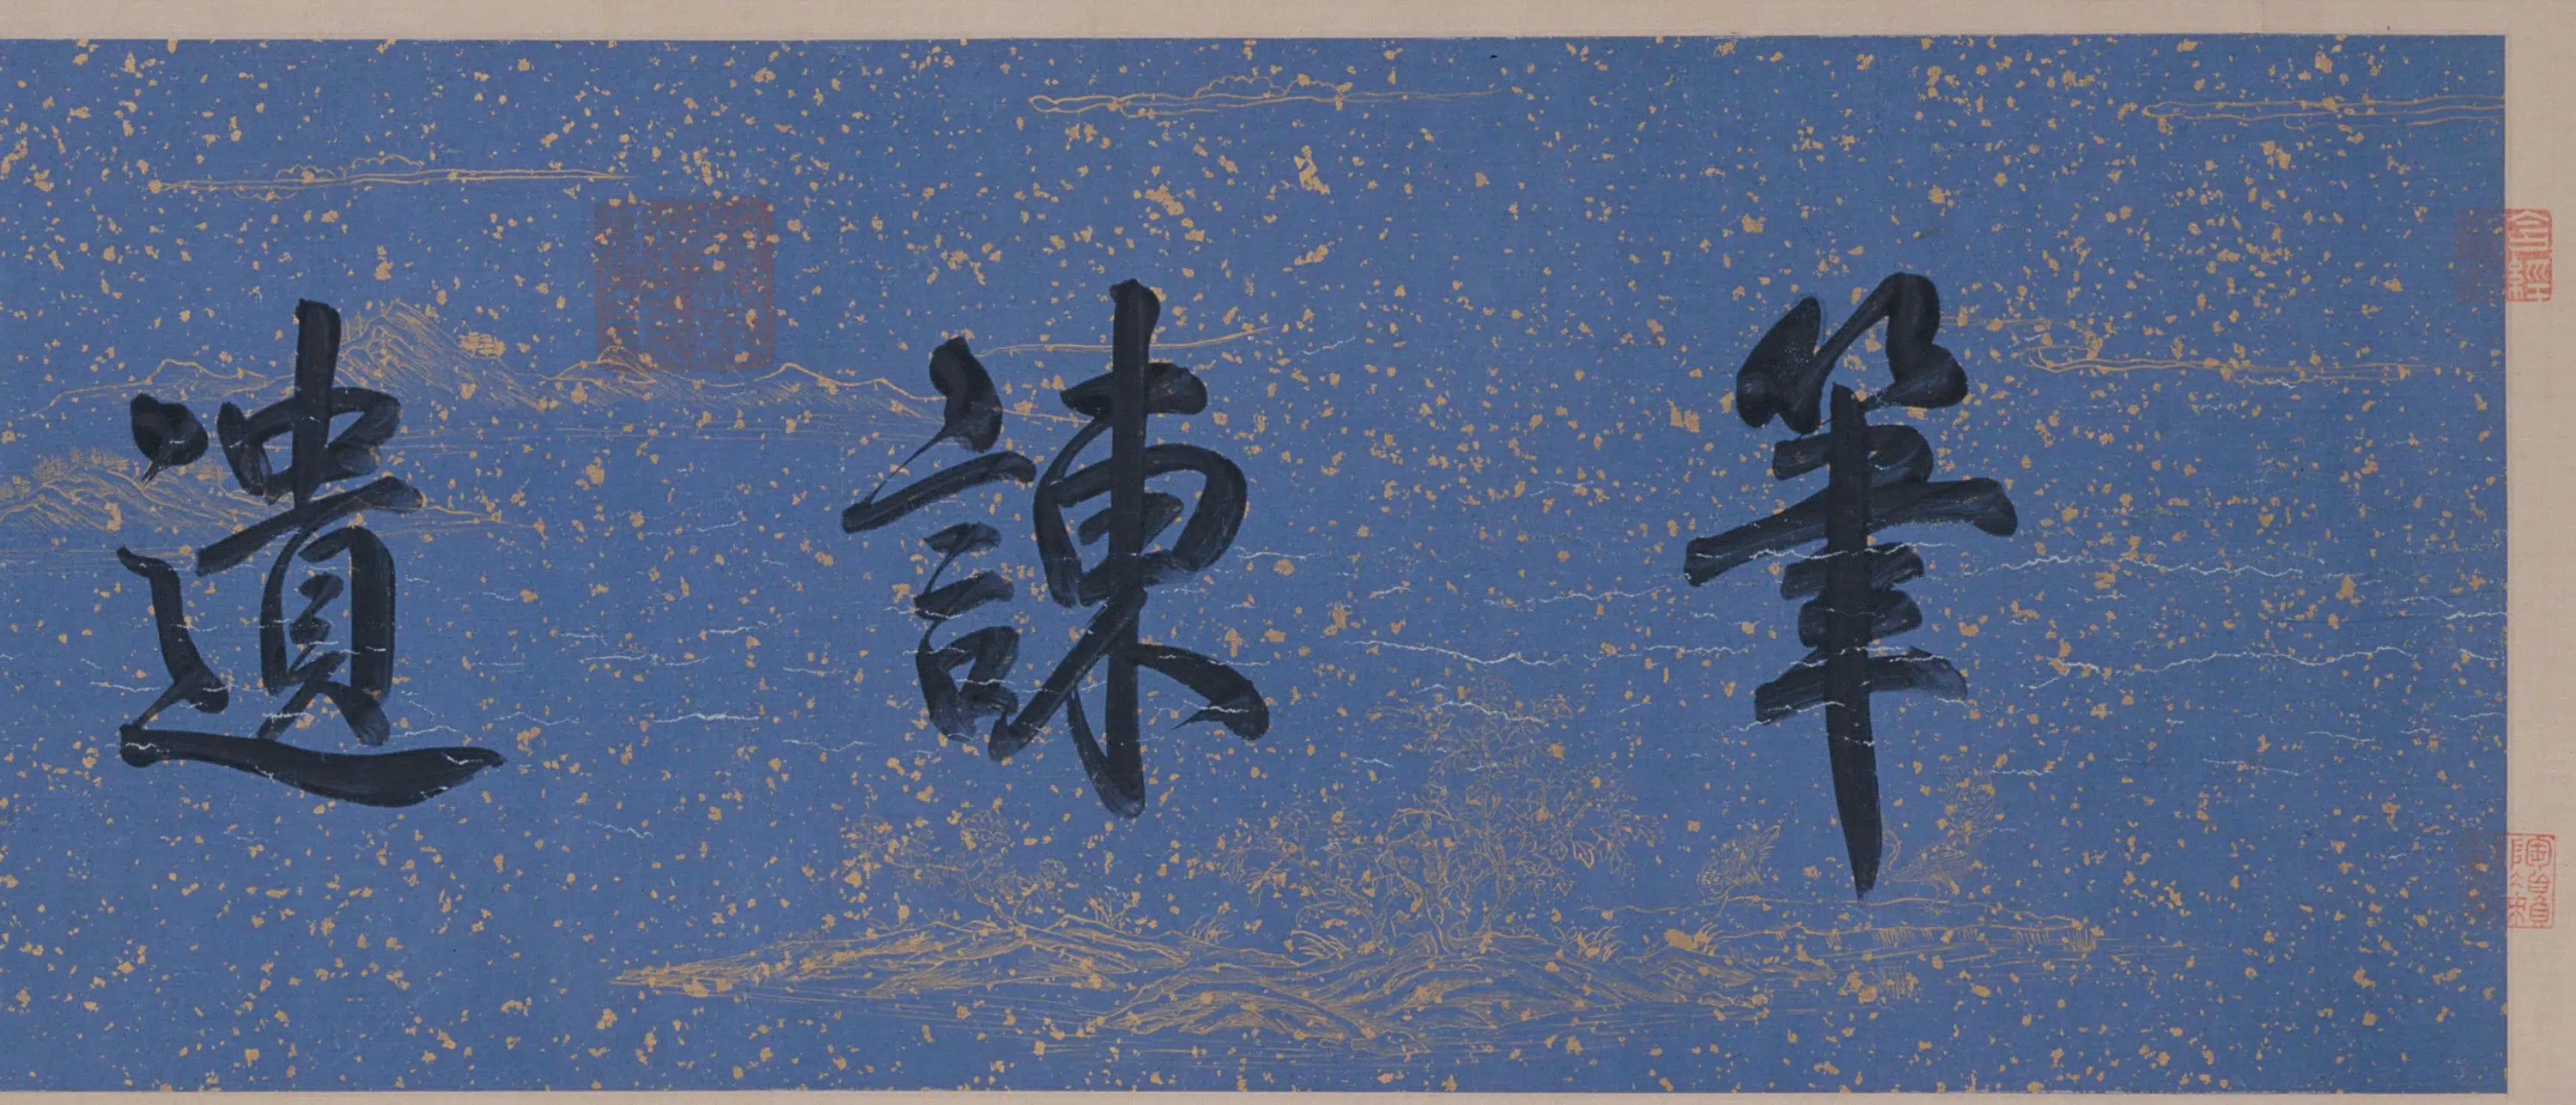 筆諫遺